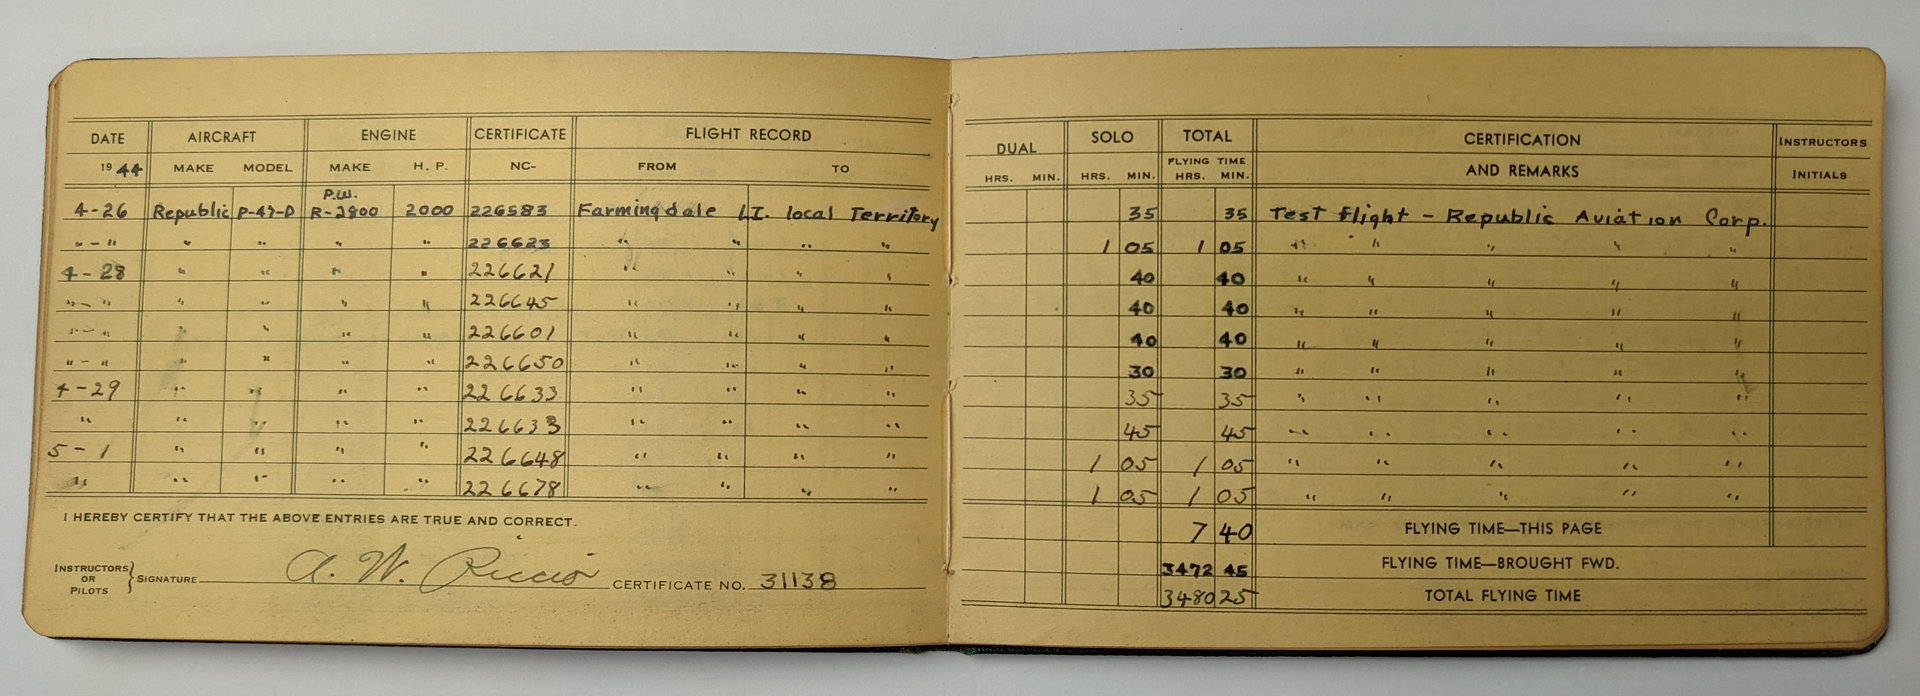 DATE AIRCRAFT ENGINE CERTIFICATE FLIGHT RECORD
1944 MAKE MODEL MAKE H. P. NC- FROM TO
P.W.
4-26 Republic P-47-D R-2800 2000 226583 Farmingdale L.I. local Territory
" - " " " " " 226623 " " " "
4-28 " " " " 226621 " " " "
" - " " " " " 226645 " " " "
" - " " " " " 226601 " " " "
" - " " " " " 226650 " " " "
4-29 " " " " 226633 " " " "
" " " " " 226633 " " " "
5-1 " " " " 226648 " " " "
" " " " " 226678 " " " "
I HEREBY CERTIFY THAT THE ABOVE ENTRIES ARE TRUE AND CORRECT.
INSTRUCTORS OR PILOTS } SIGNATURE A. W. Riccio CERTIFICATE NO. 31138
DUAL SOLO TOTAL CERTIFICATION INSTRUCTORS
FLYING TIME
HRS. MIN. HRS. MIN. HRS. MIN. AND REMARKS INITIALS
35 35 Test flight - Republic Aviation Corp.
1 05 1 05 " " " " "
40 40 " " " " "
40 40 " " " " "
40 40 " " " " "
30 30 " " " " "
35 35 " " " " "
45 45 " " " " "
1 05 1 05 " " " " "
1 05 1 05 " " " " "
7 40 FLYING TIME—THIS PAGE
3472 45 FLYING TIME—BROUGHT FWD.
3480 25 TOTAL FLYING TIME